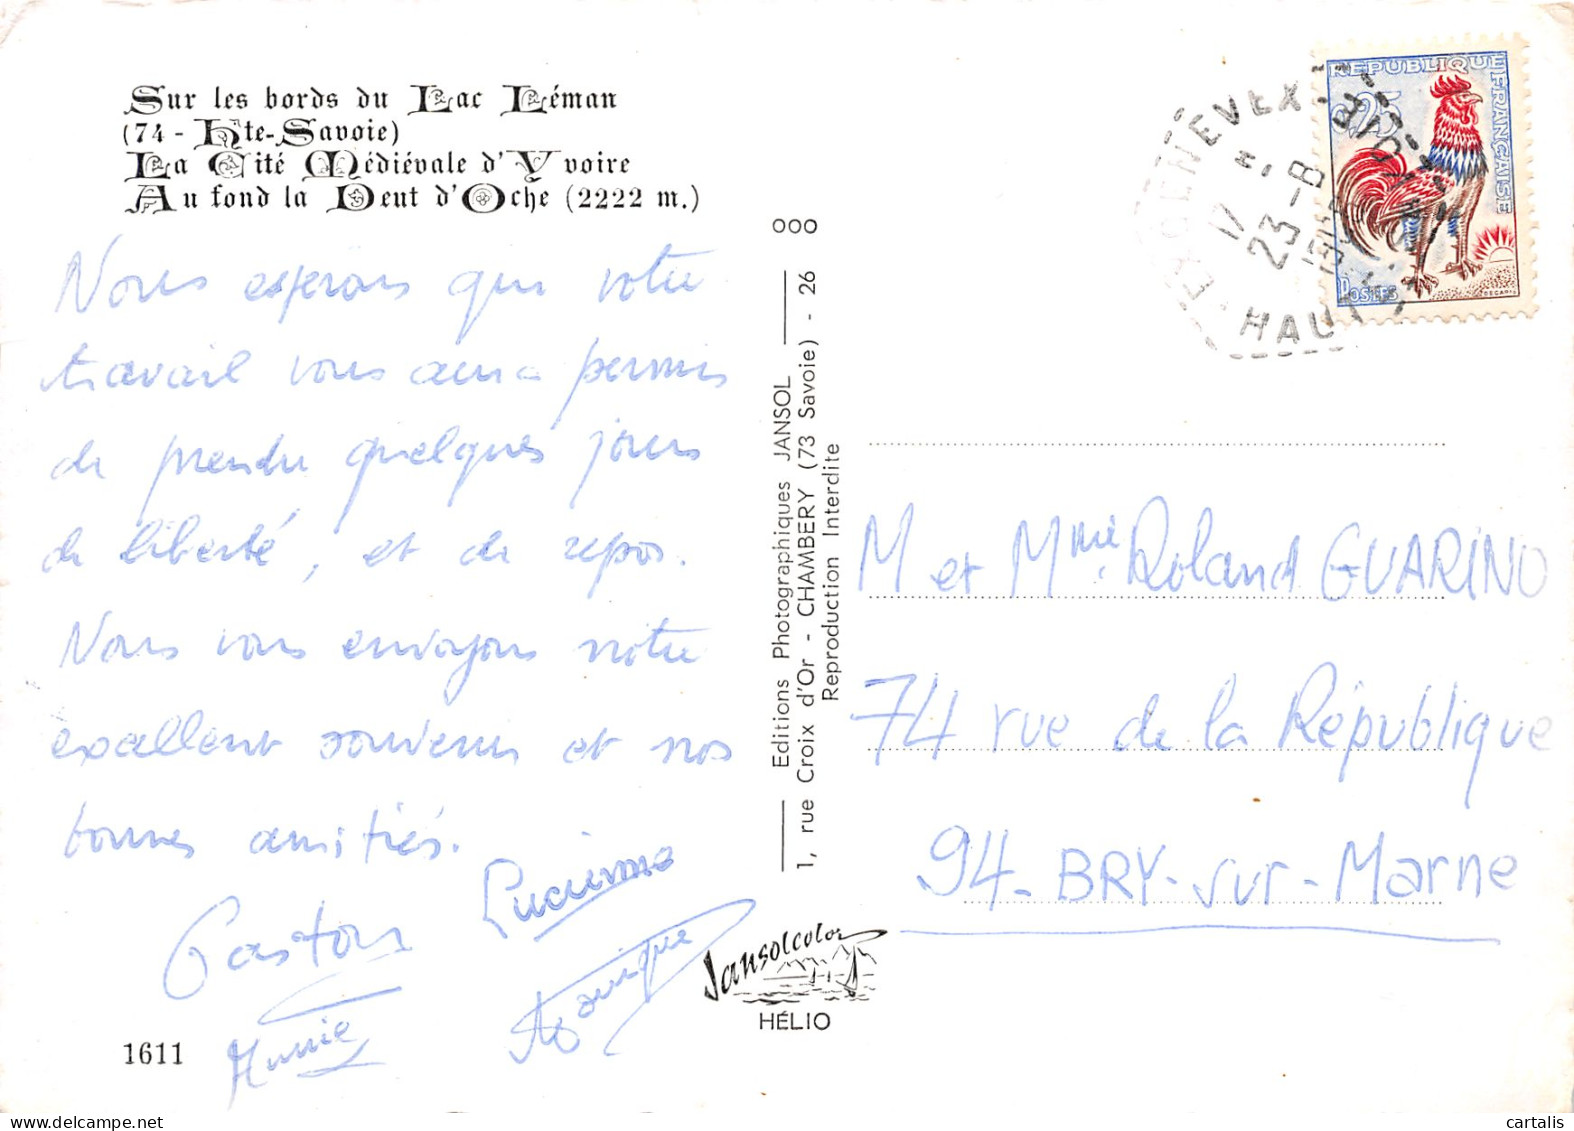 Sur les bords du Lac Léman
(74 - Hte-Savoie)
La Cité Médiévale d'Yvoire
Au fond la Dent d'Oche (2222 m.)
Nous esperons que votre
travail vous aura permis
de prendre quelques jours
de liberté, et de repos.
Nous vous envoyons notre
excellent souvenir et nos
bonnes amitiés.
Lucienne
Gaston
1611
OOO
Editions Photographiques JANSOL
1, rue Croix d'Or - CHAMBERY (73 Savoie) - 26
Reproduction Interdite
Jansolcolor
HÉLIO
REPUBLIQUE FRANÇAISE
0,25
POSTES
DECARIS
17 H
23-8
HAUTE
M et Mme Roland GUARINO
74 rue de la République
94-BRY-sur-Marne
cartalis
delcampe.net